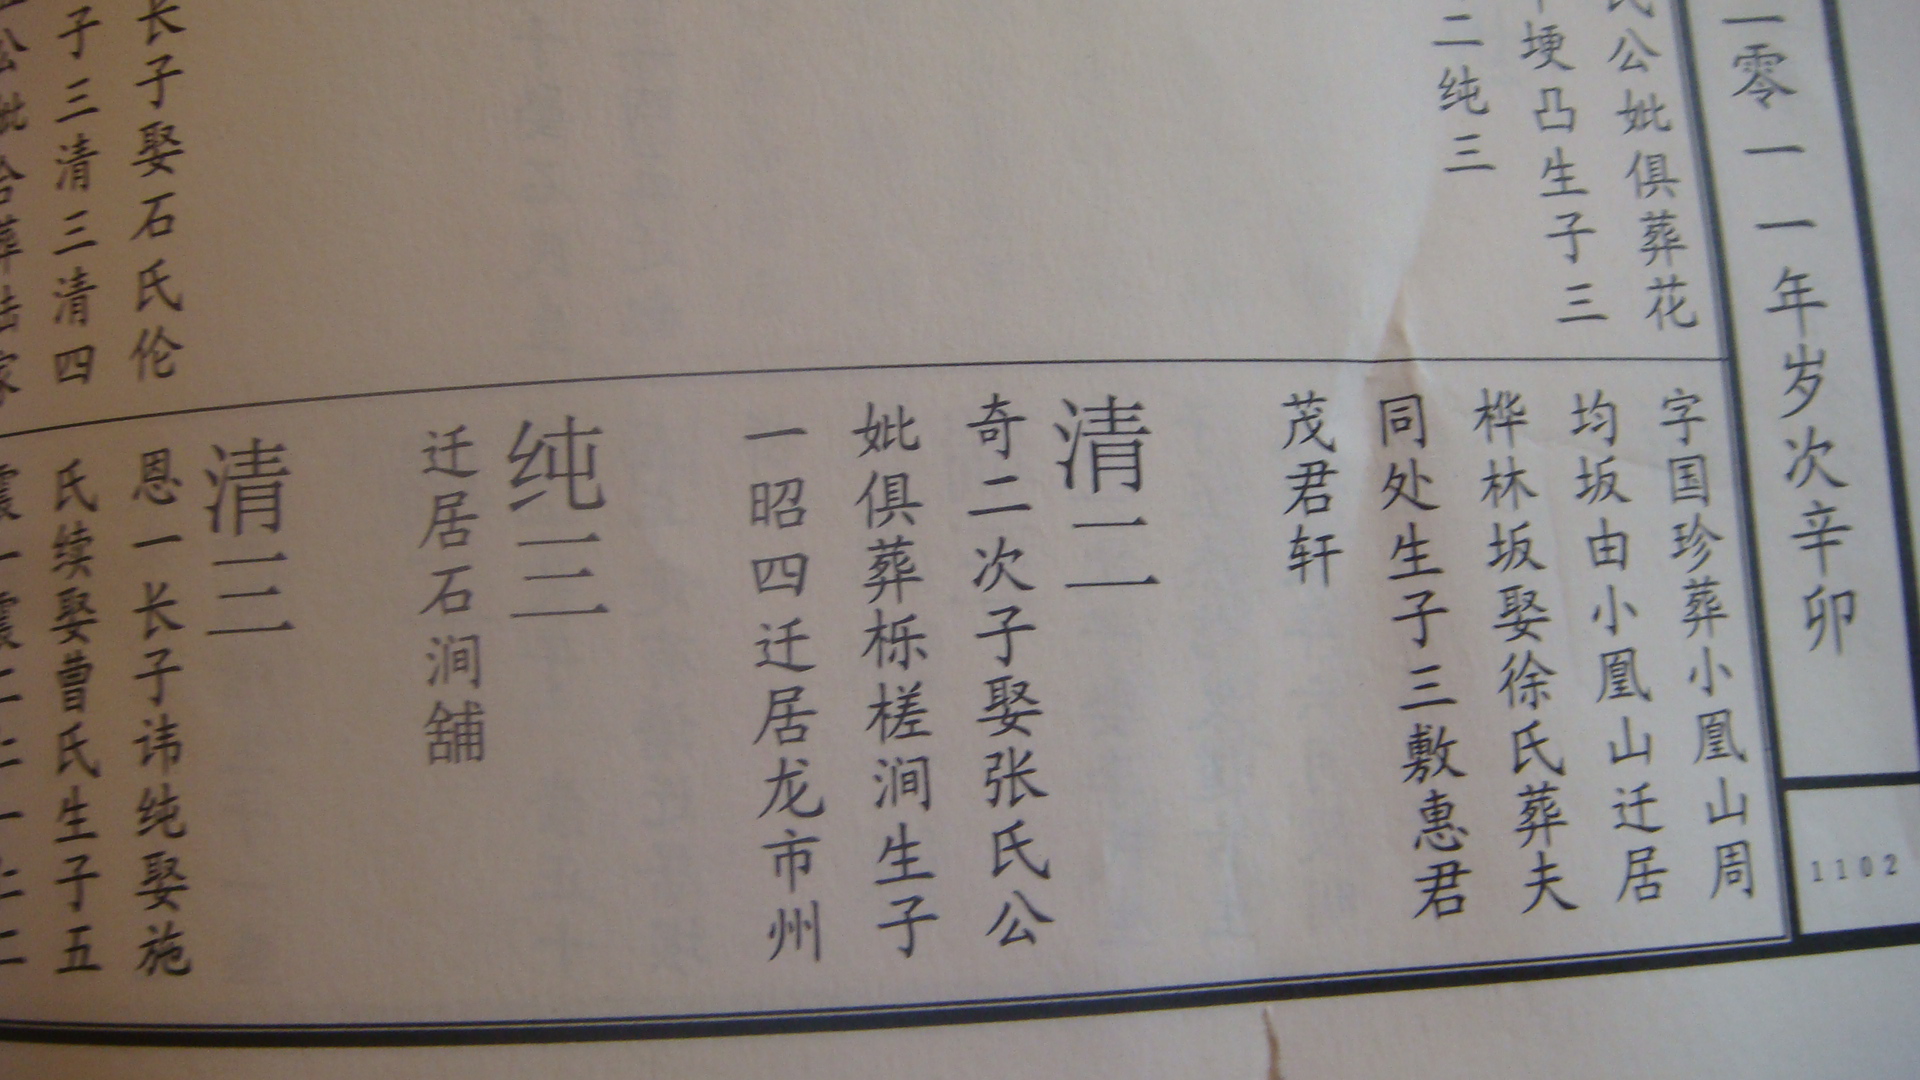 二零一一年岁次辛卯
1102
公妣俱葬花
埂凸生子三
二纯三
长子娶石氏伦
子三清三清四
字国珍葬小凰山周
均坂由小凰山迁居
桦林坂娶徐氏葬夫
同处生子三敷惠君
茂君轩
清二
奇二次子娶张氏公
妣俱葬栎槎涧生子
一昭四迁居龙市州
纯三
迁居石涧舖
清三
恩一长子讳纯娶施
氏续娶曹氏生子五